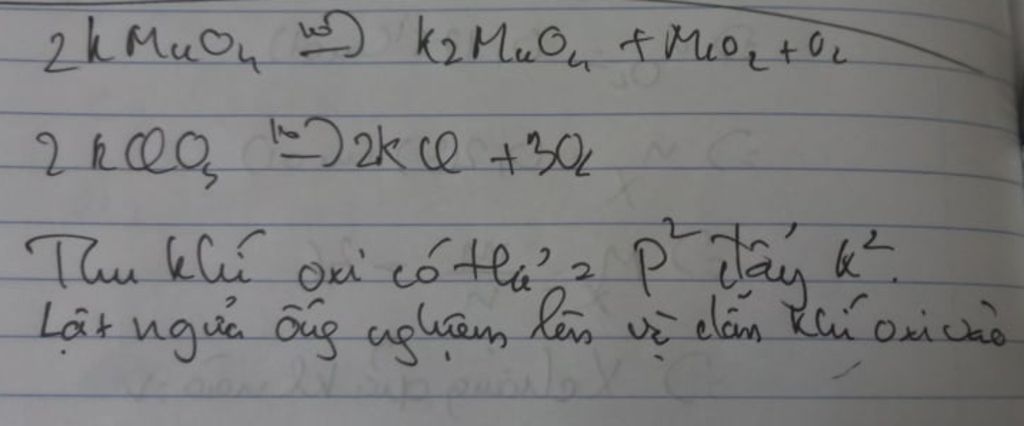 2KMnO4 t° => K2MnO4 + MnO2 + O2
2KClO3 t° => 2KCl + 3O2
Thu khí oxi có thể = p² đẩy k².
Lật ngửa ống nghiệm lên và dẫn khí oxi vào